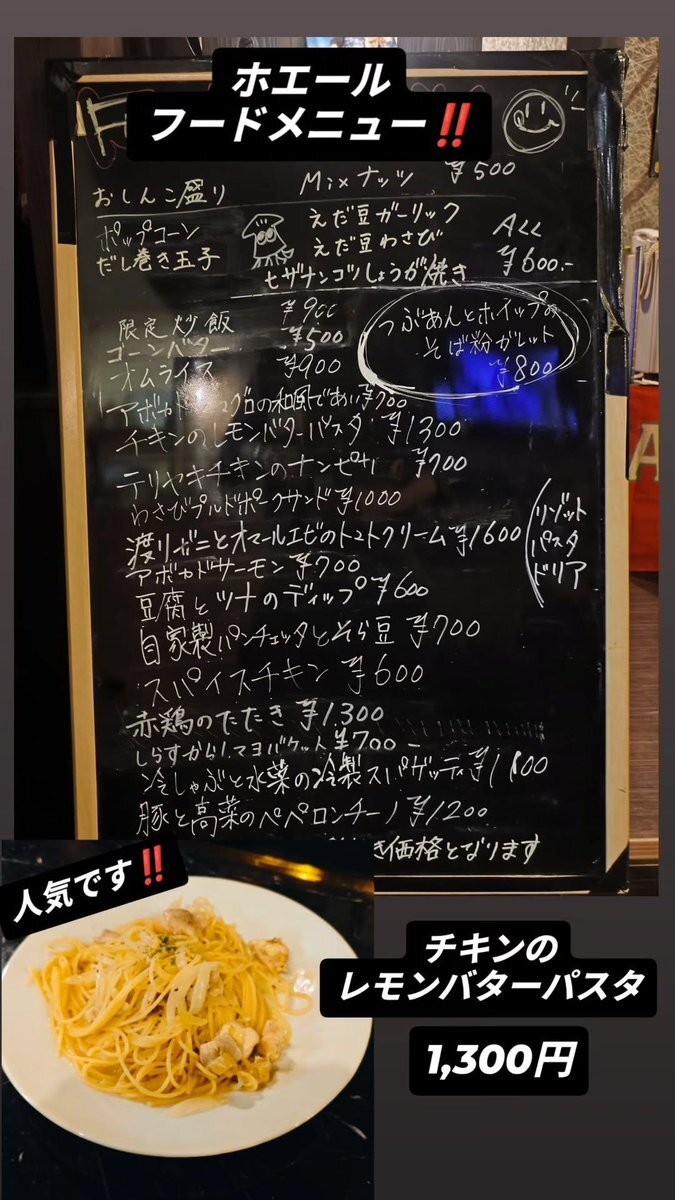 ホエール
フードメニュー‼
おしんこ盛り
Mixナッツ ¥500
ポップコーン
だし巻き玉子
えだ豆ガーリック
えだ豆わさび
ヒザナンコツしょうが焼き
ALL
¥600.-
限定炒飯 ¥900
コーンバター ¥500
オムライス ¥900
つぶあんとホイップの
そば粉ガレット
¥800
アボカドとマグロの和風であい ¥700
チキンのレモンバターパスタ ¥1300
テリヤキチキンのナンピザ ¥700
わさびプルドポークサンド ¥1000
渡りガニとオマールエビのトマトクリーム ¥1600
リゾット
パスタ
ドリア
アボカドサーモン ¥700
豆腐とツナのディップ ¥600
自家製パンチェッタとそら豆 ¥700
スパイスチキン ¥600
赤鶏のたたき ¥1.300
しらすからしマヨバケット ¥700-
冷しゃぶと水菜の冷製スパゲッティ
豚と高菜のペペロンチーノ ¥1200
き価格となります
人気です‼
チキンの
レモンバターパスタ
1,300円